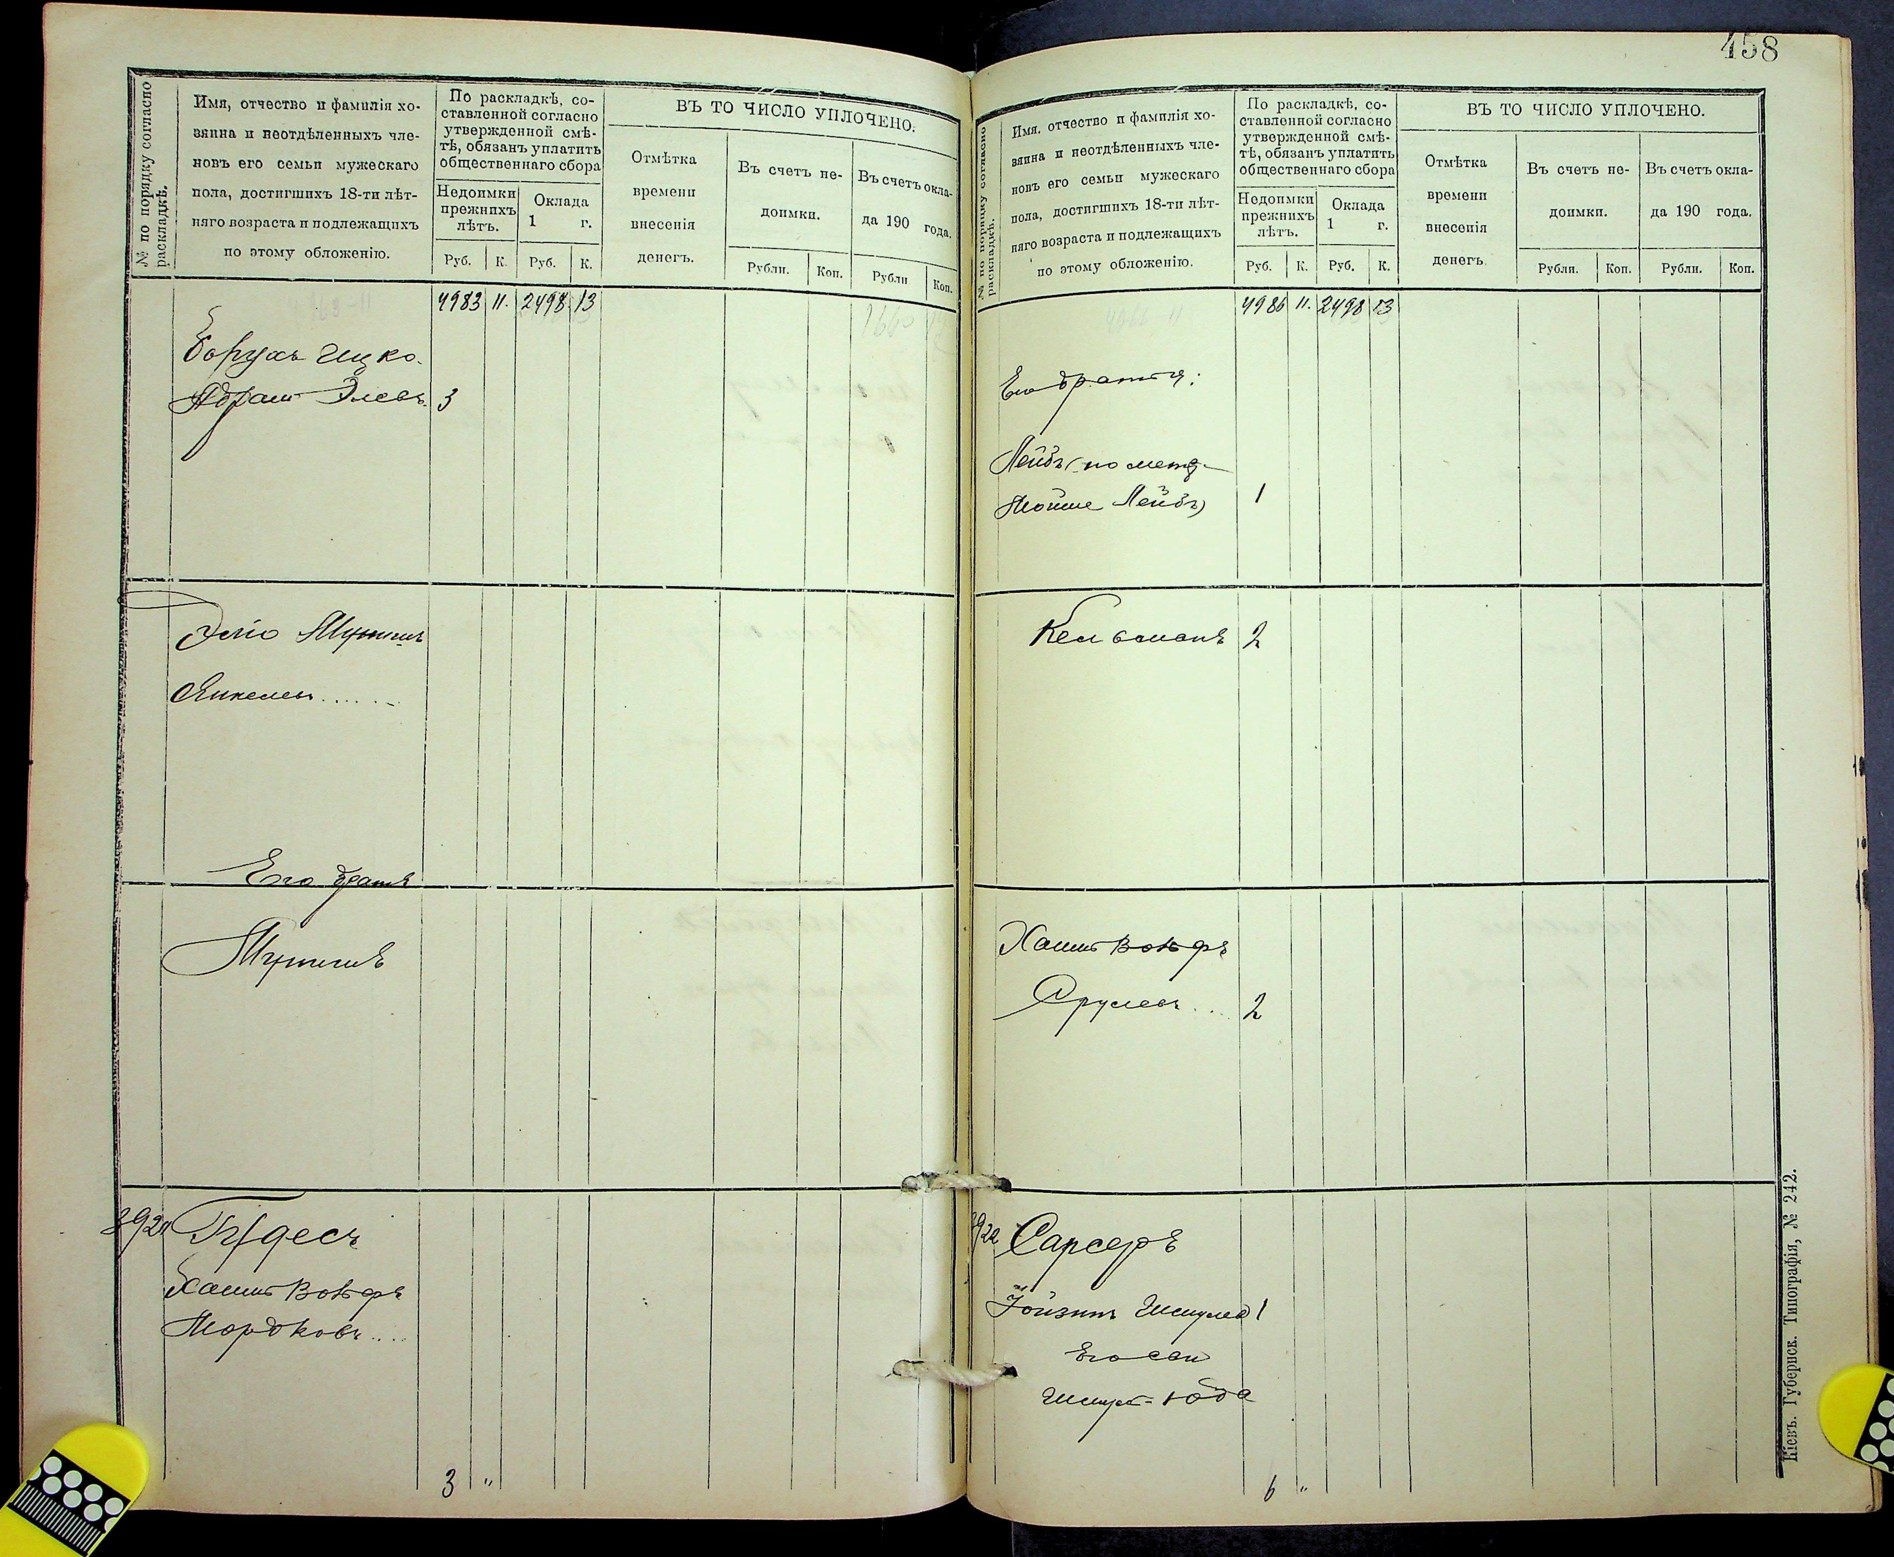 458
№ по порядку согласно раскладкѣ.
Имя, отчество и фамилія хо-
зяина и неотдѣленныхъ чле-
новъ его семьи мужескаго
пола, достигшихъ 18-ти лѣт-
няго возраста и подлежащихъ
по этому обложенію.
По раскладкѣ, со-
ставленной согласно
утвержденной смѣ-
тѣ, обязанъ уплатить
общественнаго сбора
Недоимки
прежнихъ
лѣтъ.
Оклада
1 г.
Руб. К. Руб. К.
ВЪ ТО ЧИСЛО УПЛОЧЕНО.
Отмѣтка
времени
внесенія
денегъ.
Въ счетъ не-
доимки.
Въ счетъ окла-
да 190 года.
Рубли. Коп. Рубли Коп.
4983 11. 2498 13
Борухъ Ицко.
Абрам Элевъ. 3
Эліо
Янкелевъ......
Его братъ
3921
Хаимъ Вольфъ
Мордковъ....
3 "
№ по порядку согласно раскладкѣ.
Имя, отчество и фамилія хо-
зяина и неотдѣленныхъ чле-
новъ его семьи мужескаго
пола, достигшихъ 18-ти лѣт-
няго возраста и подлежащихъ
по этому обложенію.
По раскладкѣ, со-
ставленной согласно
утвержденной смѣ-
тѣ, обязанъ уплатить
общественнаго сбора
Недоимки
прежнихъ
лѣтъ.
Оклада
1 г.
Руб. К. Руб. К.
ВЪ ТО ЧИСЛО УПЛОЧЕНО.
Отмѣтка
времени
внесенія
денегъ.
Въ счетъ не-
доимки.
Въ счетъ окла-
да 190 года.
Рубли. Коп. Рубли. Коп.
4986 11. 2498 13
Его братья:
Лейбъ (по метр.
Мойше Лейбъ) 1
Кельманъ 2
Хаимъ Вольфъ
Срулевъ... 2
3922 Сарсеръ
Шмулев 1
Его сын
Шмул-Юда
6 "
Кіевъ. Губернск. Типографія, № 242.